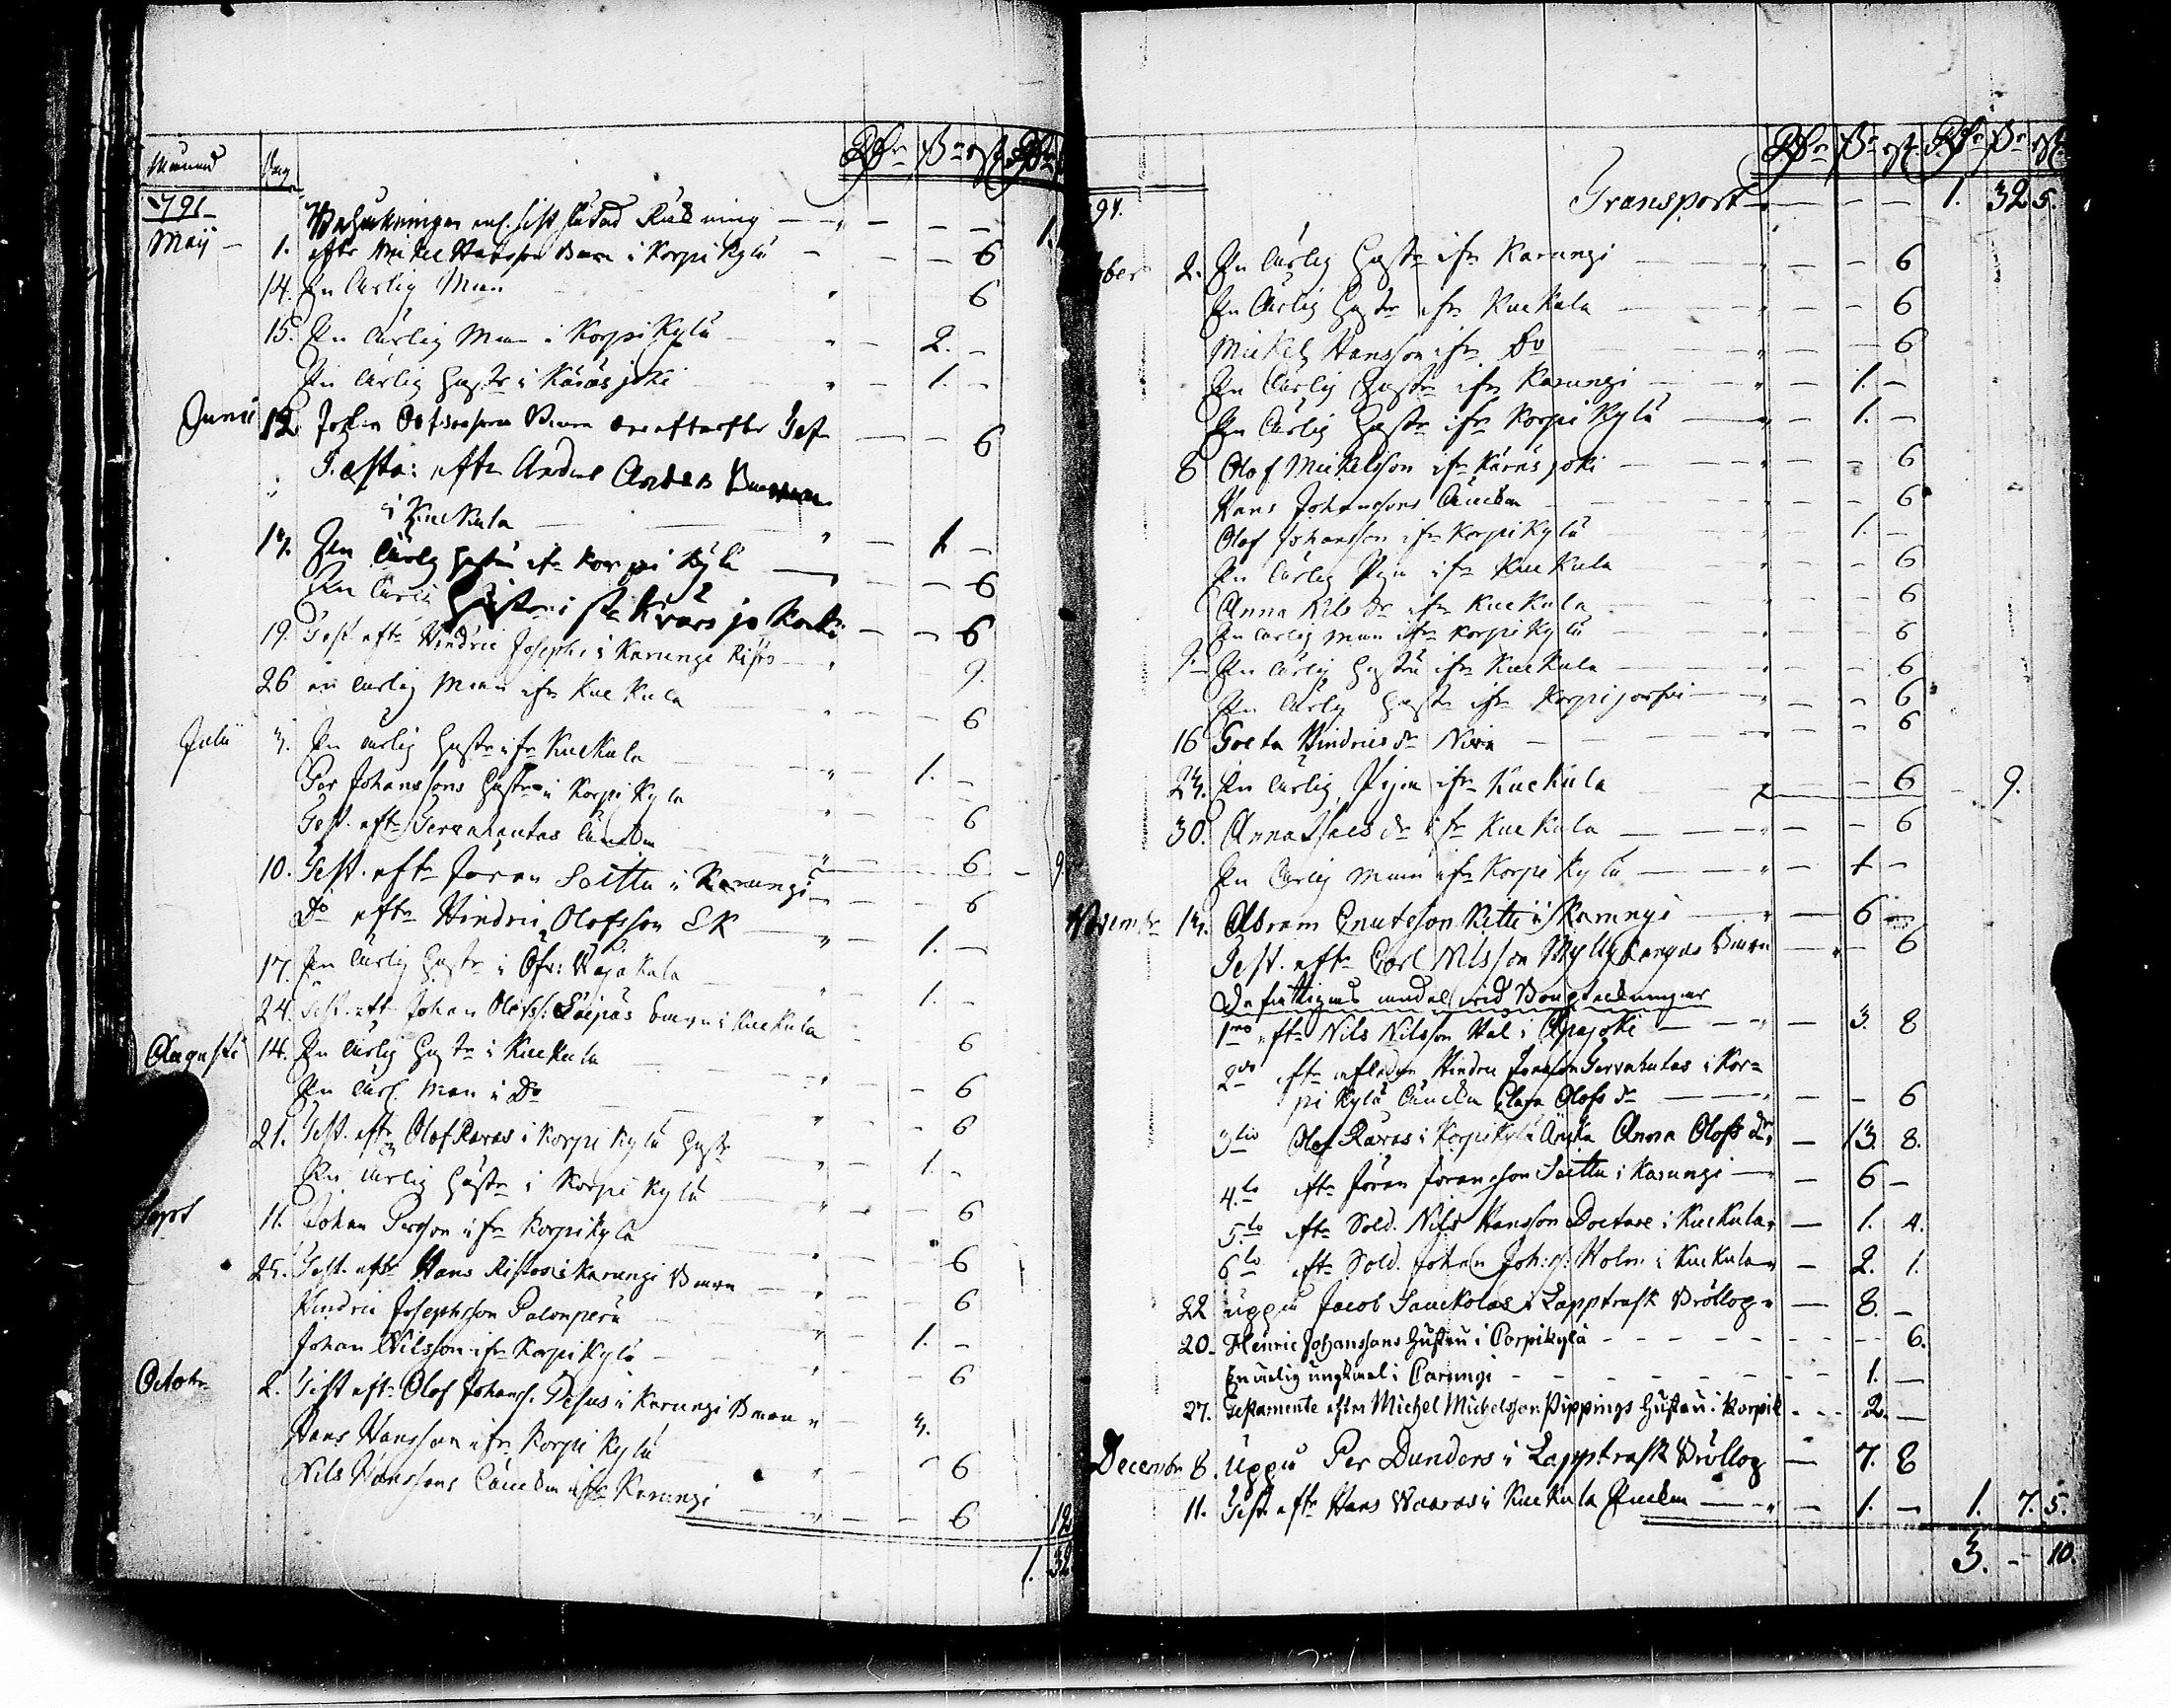 Månad Dag Rdr ß rst Rdr
1791
Behållningen enl. sist slutad Räkning 1.
Maij 1. efter Mikel Hansson Barn i Korpikylä 6
14. En ärlig Man 6
15. En ärlig Man i Korpikylä 2. -
En ärlig Hustru i Karasjoki 1. -
Junii 12. Johan Barn Test. 6
Testa: efter Anders Anders
i Kuckula 1 -
13. En ärlig Hustru ifr Korpikylä 6
En ärlig Hustru i 6
19. Test. eftr Hindric Josephs: i Karungi Risto 9.
26 en ärlig Man ifr Kuckula 6
Julii 3. En ärlig Hustru ifr Kuckula 1. -
Per Johanssons Hustru i Korpikylä 6
Test. eftr Servahautas Änckan 6 9
10. Test. eftr Jöran Soitta i Karungi 6
Do eftr Hindric Olofsson 1. -
17. En ärlig Hustru i Öfr: Wojakala 1. -
24. Test. eftr Johan Olofss: barn i Kuckula 6
Augusti 14. En ärlig Hustru i Kuckula 6
En ärl. Man i Do 6
21. Test. eftr Olof Raves i Korpikylä Hustr 1. -
En ärlig Hustru i Korpikylä 6
Sept 11. Johan Persson ifr Korpikylä 6
25. Test. eftr Hans Ristos i Karungi Barn 6
Hindric Josephsson Palonperä 1. -
Johan Nilsson ifr Korpikylä 6
Octobr 2. Test eftr Olof Johanss. i Karungi Barn 3.
Hans Hansson ifr Korpikylä 6
Nils Hanssons Änckan ifr Karungi 6 12
1. 32
Rdr ß rst Rdr ß rst
91. Transport 1. 32 5.
ber 2. En ärlig Hustr ifr Karungi 6
En ärlig Hustr ifr Kuckula 6
Mickel Hansson ifr Do 6
En ärlig Hustr ifr Karungi 1. -
En ärlig Hustr ifr Korpikylä 1. -
8 Olof Mickelsson ifr Karasjoki 6
Hans Johanssons Änckan 6
Olof Johansson ifr Korpikylä 1. -
En ärlig Piga ifr Kuckula 6
Anna Nils dr ifr Kuckula 6
En ärlig Man ifr Korpikylä 6
9. En ärlig Hustru ifr Kuckula 6
En ärlig Hustr ifr Korpijärfvi 6
16 Greta Hindrics dr Niva 6
23. En ärlig Piga ifr Kuckula 6 9.
30. Anna dr ifr Kuckula 6
En ärlig Man ifr Korpikylä 1 -
Novembr 13. Abram Enutsson Kitti i Karungi 6
Test. eftr Carl Nilsson Myllykangas Barn 6
De fattigas andel vid Bouptekningar
1mo eftr Nils Nilsson i Apajoki 3. 8
2do eftr aflidne Hindric Servahutas i Kor=
pikylä Änckan Olofs dr 6
3tio Olof Raves i Korpikylä Änka Anna Olofs dr 13. 8.
4.to eftr Jöran Joransson Soitta i Karungi 6 -
5.to eftr Sold. Nils Hansson Doctare i Kuckula 1. 4.
6to eftr Sold. Johan Joh:s: Holm i Kuckula 2. 1.
22 uppå Jacob Sauckolas i Lappträsk Bröllop 8. -
20. Henric Johanssons hustru i Corpikylä 6.
En ärlig ungkarl i Carungi 1. -
27. Testamente efter Michel Michelsson Pippings hustru i Korpik 2. -
Decembr 8. Uppå Per Dunders i Lappträsk Bröllop 7. 8
11. Test. eftr Hans Waaras i Kuckula Änckan 1. - 1. 7. 5.
3. - 10.